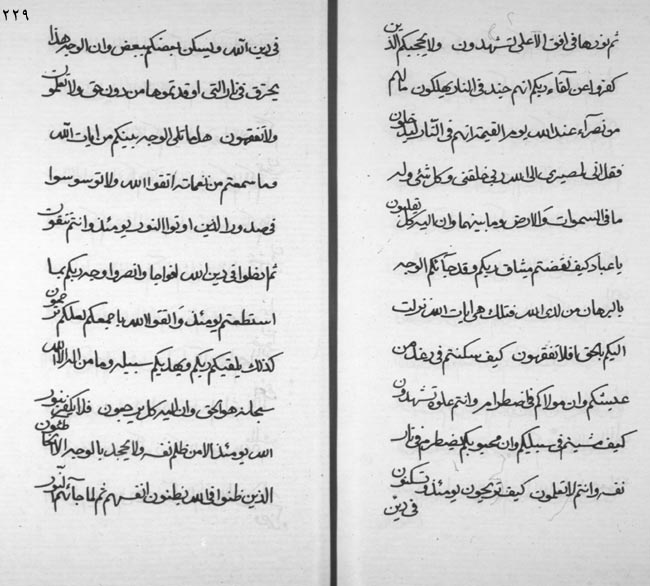 ثم نورها في افق الاعلى تشهدون ولا يحجبكم الذين
كفروا عن لقاء ربكم انهم حينئذ في النار يهلكون ما لهم
من نصرآء عند الله يوم القيمة انهم في النار ليدخلون
فقل اني لمصيري الى الله ربي خلقني وكل شئ وله
ما في السموات والارض وما بينهما وان اليه كل يقلبون
يا عباد كيف نقضتم ميثاق ربكم وقد جآئكم الوجه
بالبرهان من لدى الله فتلك هي ايات الله نزلت
اليكم بالحق افلا تفقهون كيف سكنتم في
عيشكم وان مولاكم في اضطرام وانتم علوة تشهدون
كيف مشيتم في سبيلكم وان محبوبكم يضطرم في نار
نفسه وانتم لا تعلمون كيف تريحون يومئذ وتسكنون
في دين
٢٢٩
في دين الله ويسكن بعضكم ببعض وان الوجه هذا
يحترق في نار التي اوقدتموها من دون حق ولا تعلمون
ولا تفقهون هل ما تلى الوجه بينكم من ايات الله
وما سمعتم من نغماته اتقوا الله ولا توسوسوا
في صدور الذين اوتوا النور يومئذ وانتم تتقون
ثم ادخلوا في دين الله افواجا وانصروا وجه ربكم بما
استطعتم يومئذ واتقوا الله باجمعكم لعلكم ترحمون
كذلك يلقيكم ربكم ويهديكم سبيله وما من اله الا الله
سبحانه هو الحق وان اليه كل يرجعون فلا يكفر بنور
الله يومئذ الا من ظلم نفسه ولا يجحد بالوجه الا
الذين ظنوا في الله بظنون انفسهم ثم لما جآئتهم النور